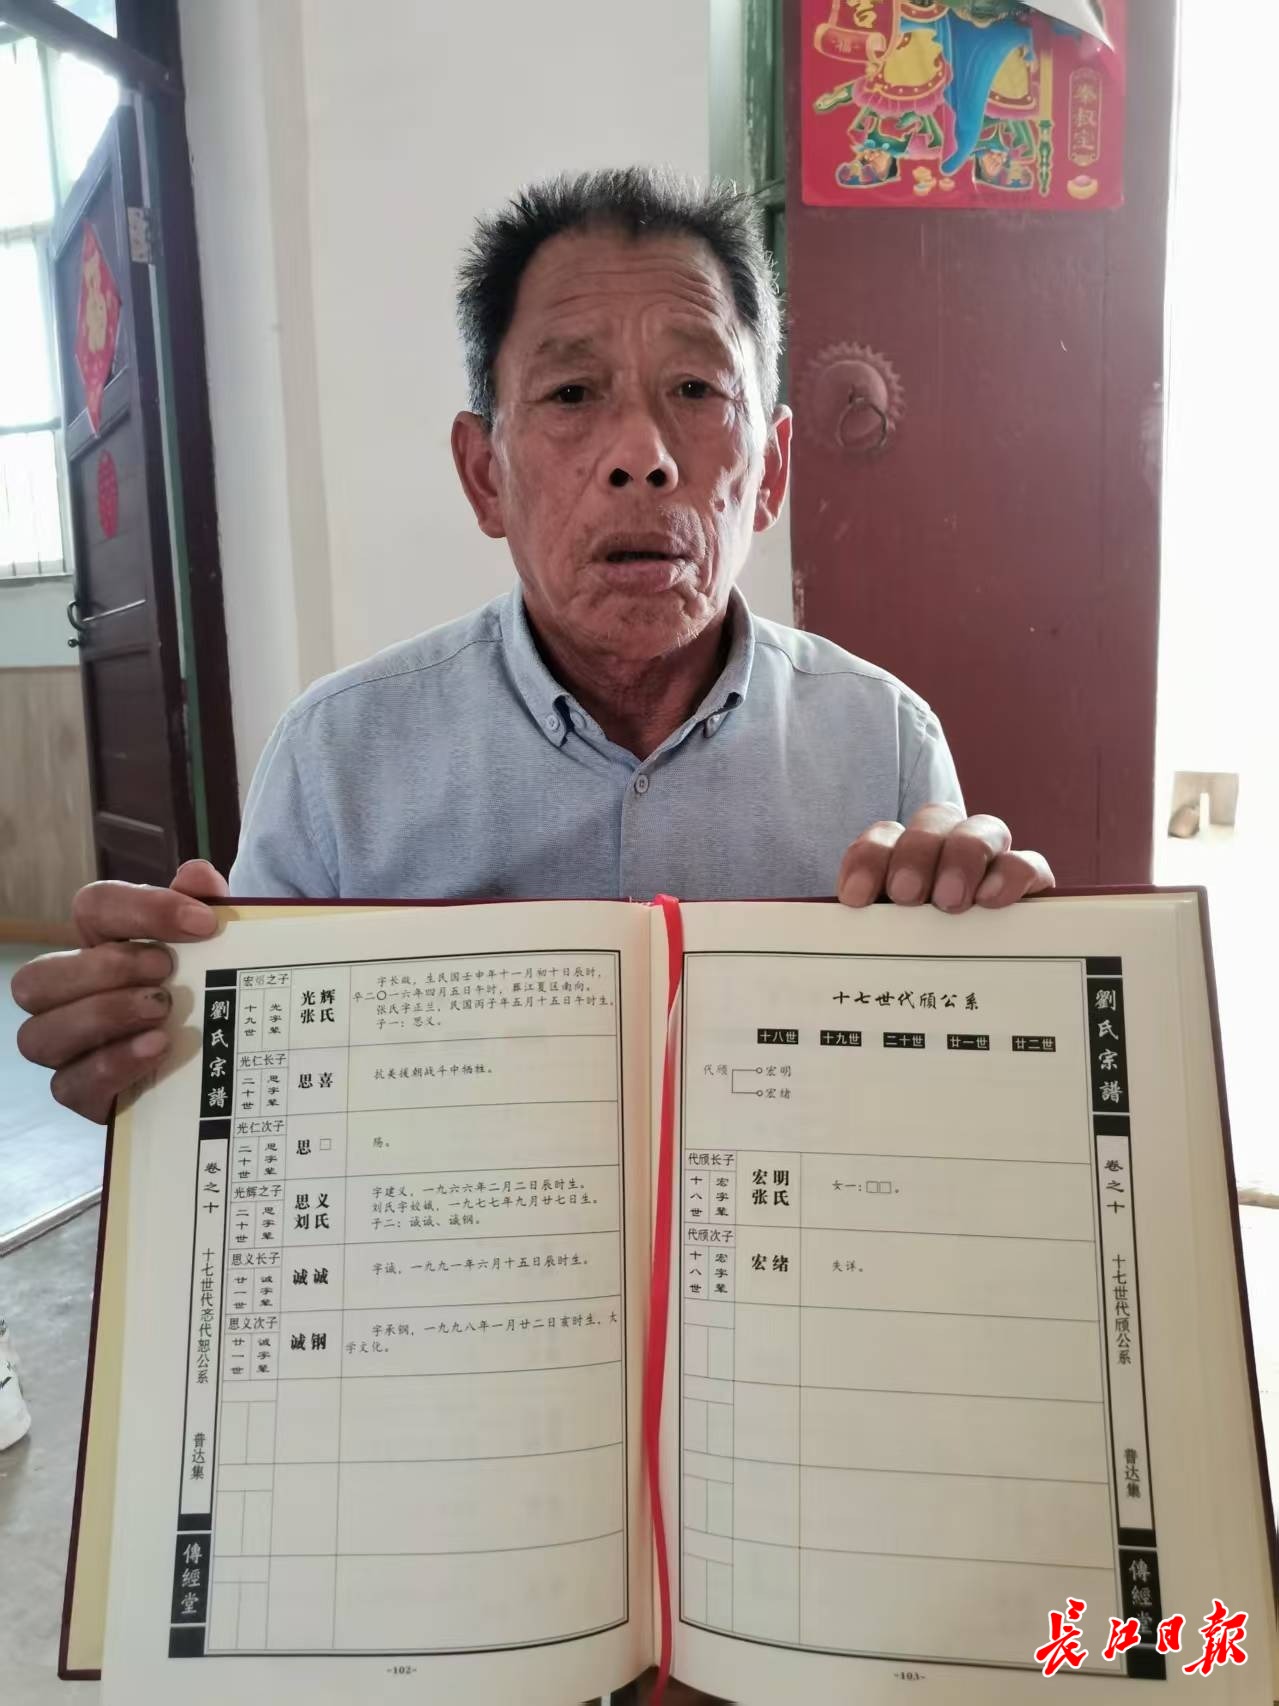 吉
福
秦叔宝
劉氏宗譜
卷之十
十七世代恕公系
普达集
傳經堂
宏炤之子
十九世
光字辈
光辉
张氏
字长敬,生民国壬申年十一月初十日辰时,
卒二〇一六年四月五日午时,葬江夏区南向。
张氏字正兰,民国丙子年五月十五日午时生。
子一:思义。
光仁长子
二十世
思字辈
思喜
抗美援朝战斗中牺牲。
光仁次子
二十世
思字辈
思□
殇。
光辉之子
二十世
思字辈
思义
刘氏
字建义,一九六六年二月二日辰时生。
刘氏字姣娥,一九七七年九月廿七日生。
子二:诚诚、诚钢。
思义长子
廿一世
诚字辈
诚诚
字诚,一九九一年六月十五日辰时生。
思义次子
廿一世
诚字辈
诚钢
字承钢,一九九八年一月廿二日亥时生,大
学文化。
-102-
十七世代颀公系
十八世 十九世 二十世 廿一世 廿二世
代颀
宏明
宏绪
代颀长子
十八世
宏字辈
宏明
张氏
女一:□□。
代颀次子
十八世
宏字辈
宏绪
失详。
劉氏宗譜
卷之十
十七世代颀公系
普达集
傳經堂
-103-
长江日报